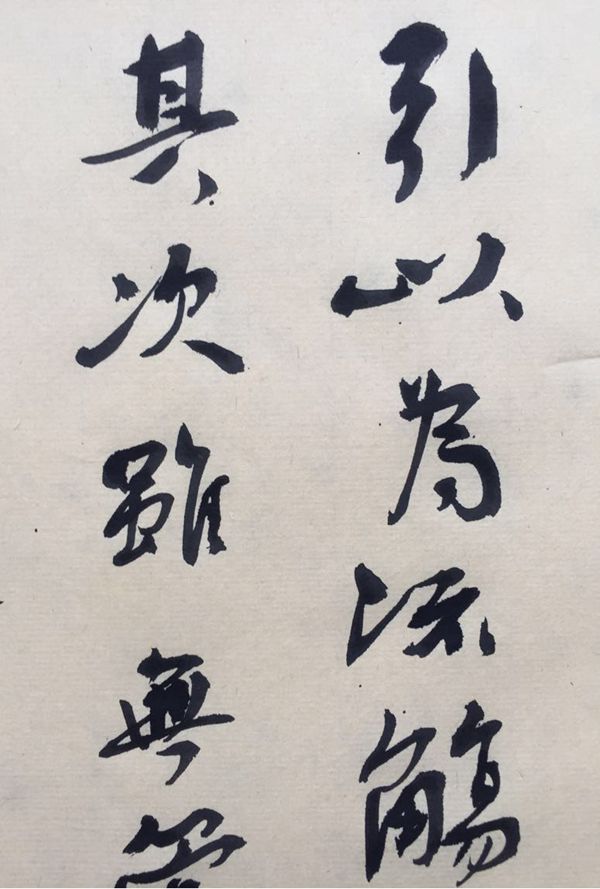 引以為流觴
其次雖無